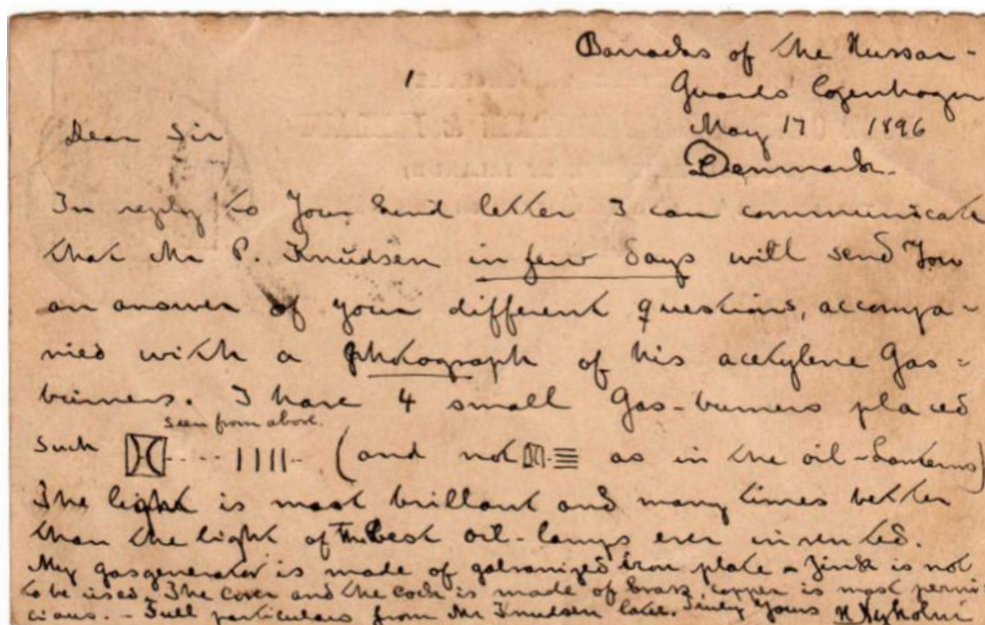 Barracks of the Hussar-
Guards Copenhagen
May 17 1896
Denmark.
Dear Sir
In reply to Your kind letter I can communicate
that Mr P. Knudsen in few days will send You
an answer of your different questions, accompa-
nied with a photograph of his acetylene Gas-
burners. I have 4 small Gas-burners placed
seen from above.
such (and not as in the oil-Lanterns)
The light is most brillant and many times better
than the light of The best oil-lamps ever invented.
My gasgenerator is made of galvanized iron plate - Zink is not
to be used. The cover and the cock is made of brass, copper is most perni-
cious. - Full particulars from Mr Knudsen later. Truly Yours H Nyholm